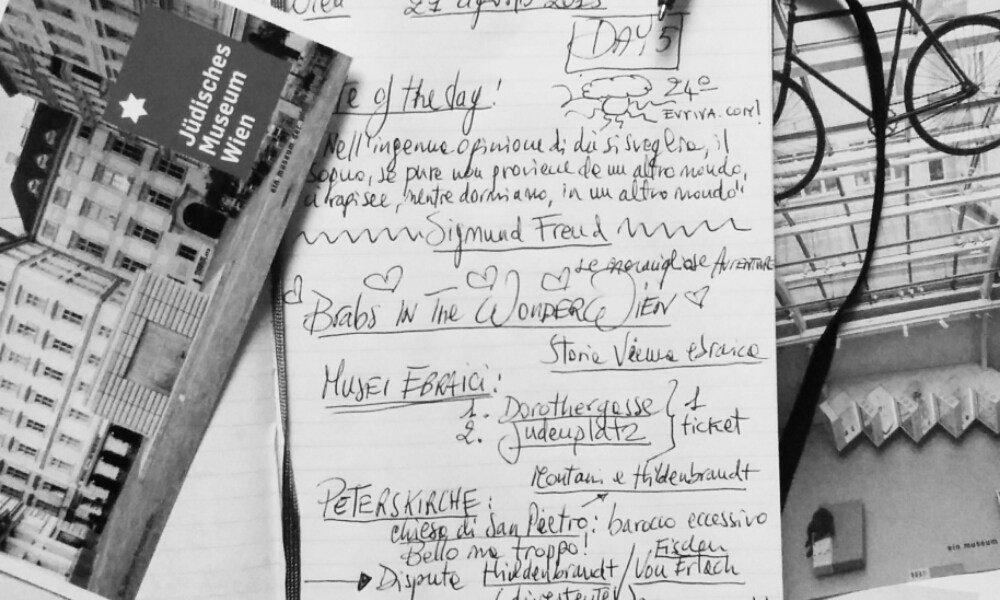 Jüdisches
Museum
Wien
ein museum
Wien 27 agosto 2015
DAY 5
of the day!
24°
EVVIVA. COM!
"Nell'ingenua opinione di chi si sveglia, il
sogno, se pure non proviene da un altro mondo,
ci rapisce, mentre dormiamo, in un altro mondo"
Sigmund Freud
le meravigliose AVVENTURE
Brabs IN The WONDER WIEN
Storia Vienna ebraica
MUSEI EBRAICI:
1. Dorothergasse
2. Judenplatz
1
ticket
Montani e Hildenbrandt
PETERSKIRCHE:
chiesa di San Pietro: barocco eccessivo
Bello ma troppo!
Dispute Hildenbrandt / Von Erlach
(divertente)
ein museum